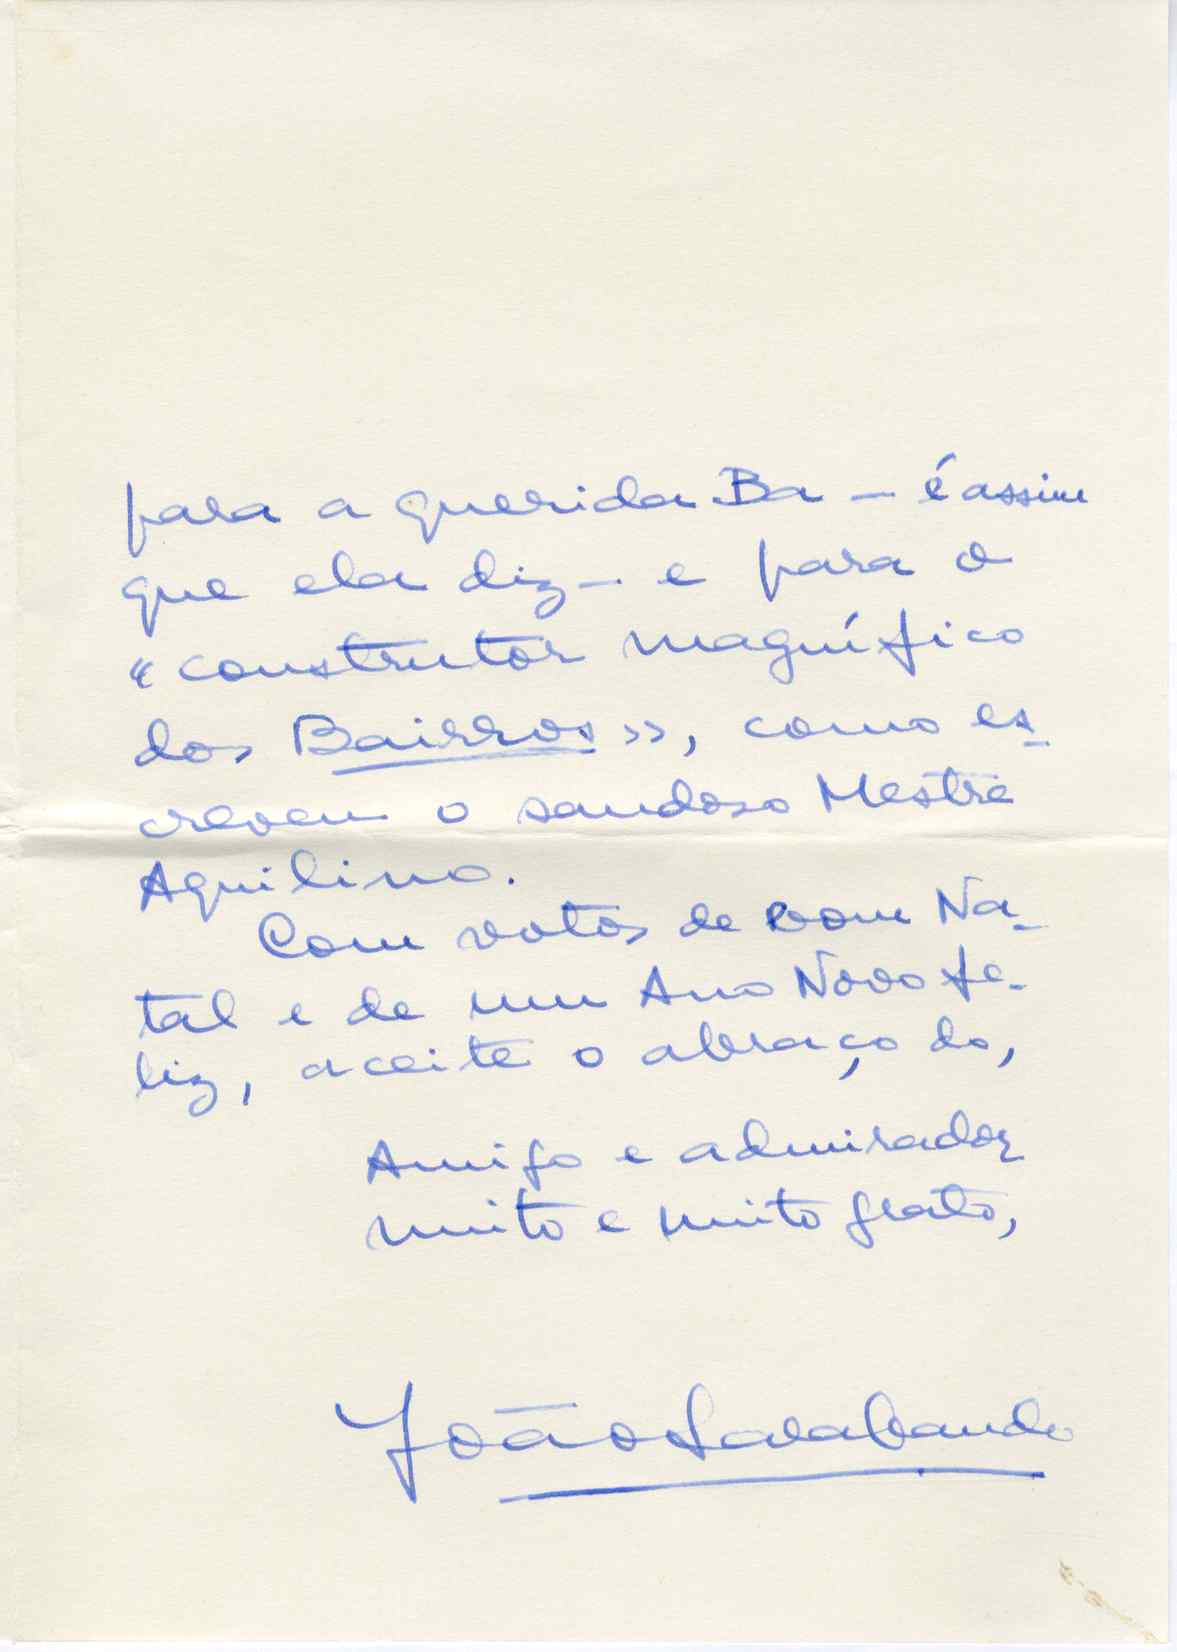 para a querida Ba — é assim
que ela diz — e para o
«construtor magnífico
dos Bairros», como es-
creveu o saudoso Mestre
Aquilino.
Com votos de bom Na-
tal e de um Ano Novo fe-
liz, aceite o abraço do,
Amigo e admirador
muito e muito grato,
João Sarabando